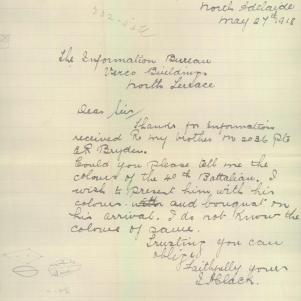 North Adelaide
May 27th 1918
The Information Bureau
Verco Buildings
North Terrace
Dear Sir
Thanks for information
received Re my brother No 2036 Pte
Bryden.
Could you please tell me the
colours of the 40th Battalion. I
wish to present him with his
colours and bouquet on
his arrival. I do not know the
colours of same.
Trusting you can
oblige
Faithfully yours
Clack.